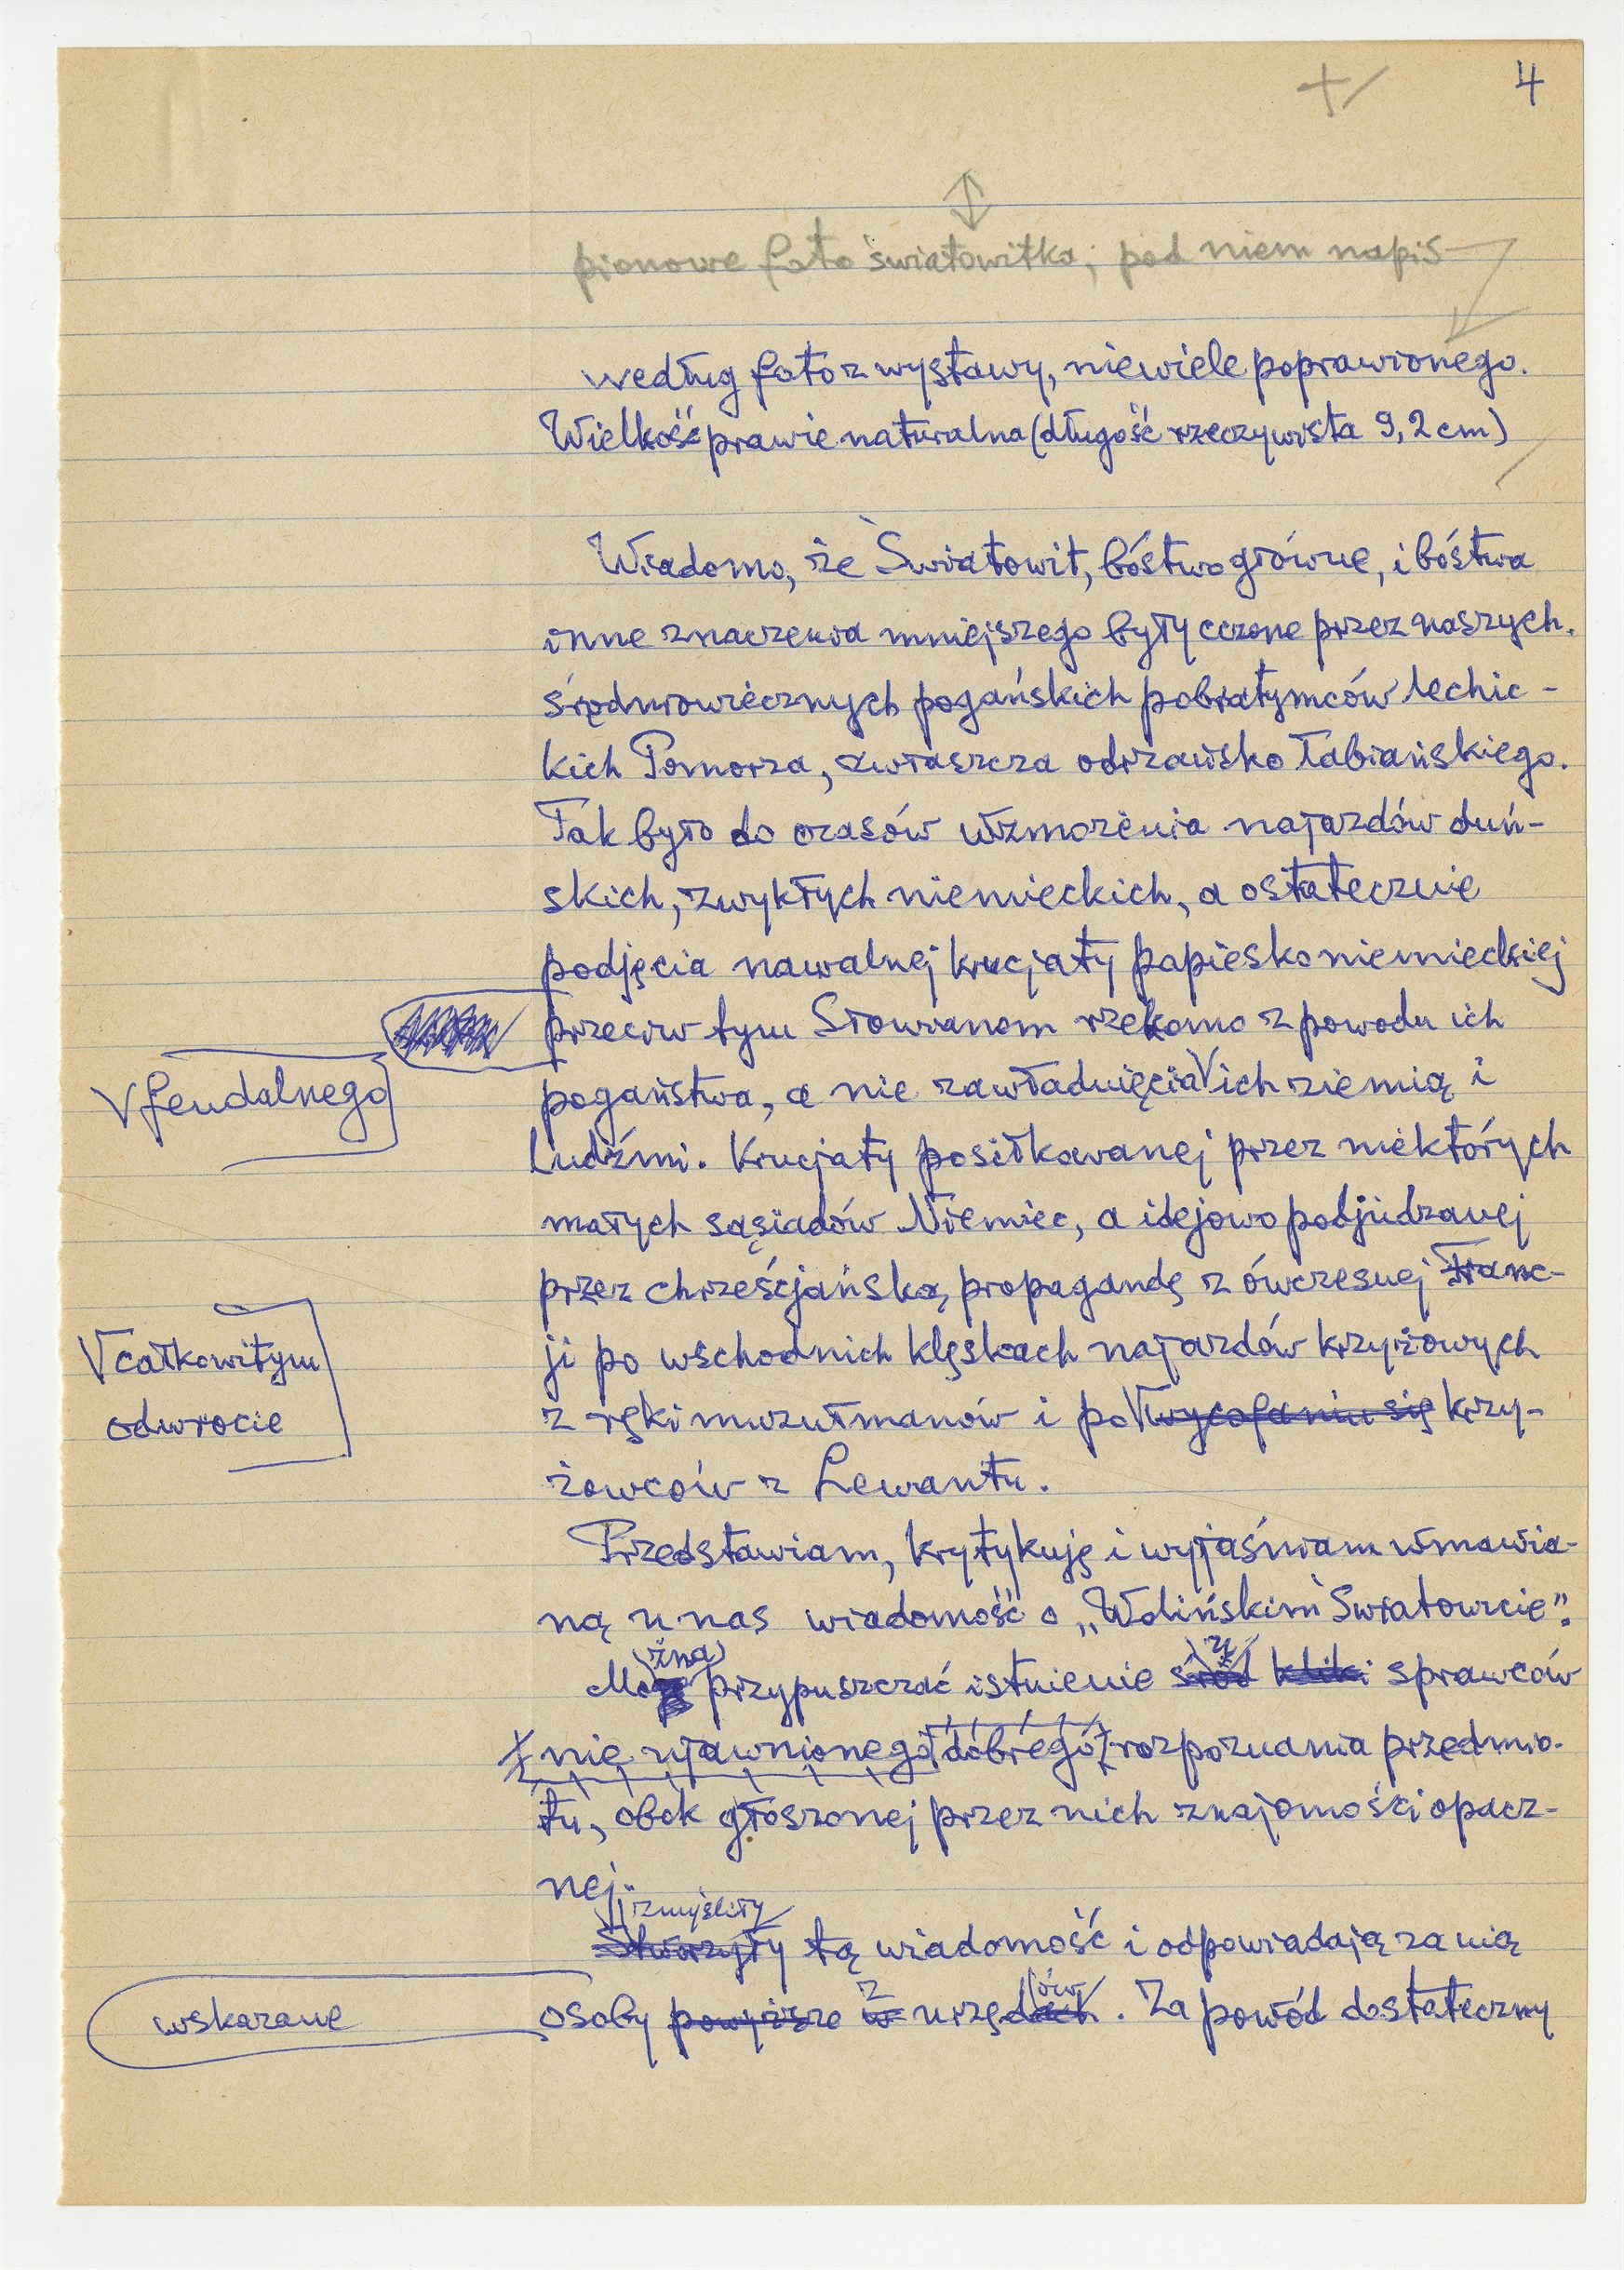 4
pionowe foto światowitka; pod niem napis
według foto z wystawy, niewiele poprawionego.
Wielkość prawie naturalna (długość rzeczywista 9,2 cm)
Wiadomo, że Światowit, bóstwo główne, i bóstwa
inne znaczenia mniejszego były czczone przez naszych
średniowiecznych pogańskich pobratymców lechic-
kich Pomorza, zwłaszcza odrzańsko łabiańskiego.
Tak było do czasów wzmożenia najazdów duń-
skich, zwykłych niemieckich, a ostatecznie
podjęcia nawalnej krucjaty papieskoniemieckiej
przeciw tym Słowianom rzekomo z powodu ich
V feudalnego
pogaństwa, a nie zawładnięcia V ich ziemią i
ludźmi. Krucjaty posiłkowanej przez niektórych
małych sąsiadów Niemiec, a idejowo podjudzanej
przez chrześcjańską propagandę z ówczesnej Franc-
ji po wschodnich klęskach najazdów krzyżowych
V całkowitym
odwrocie
z ręki muzułmanów i po V wycofaniu się krzy-
żowców z Lewantu.
Przedstawiam, krytykuję i wyjaśniam wmawia-
ną u nas wiadomość o „Wolińskim Światowicie”.
żna u
Mo przypuszczać istnienie śród kliki sprawców
nie ujawnionego dobrego rozpoznania przedmio-
tu, obok głoszonej przez nich znajomości opacz-
nej.
zmyśliły
Stworzyły tą wiadomość i odpowiadają za nią
z ów
wskazane
osoby powyższe w urzędach. Za powód dostateczny